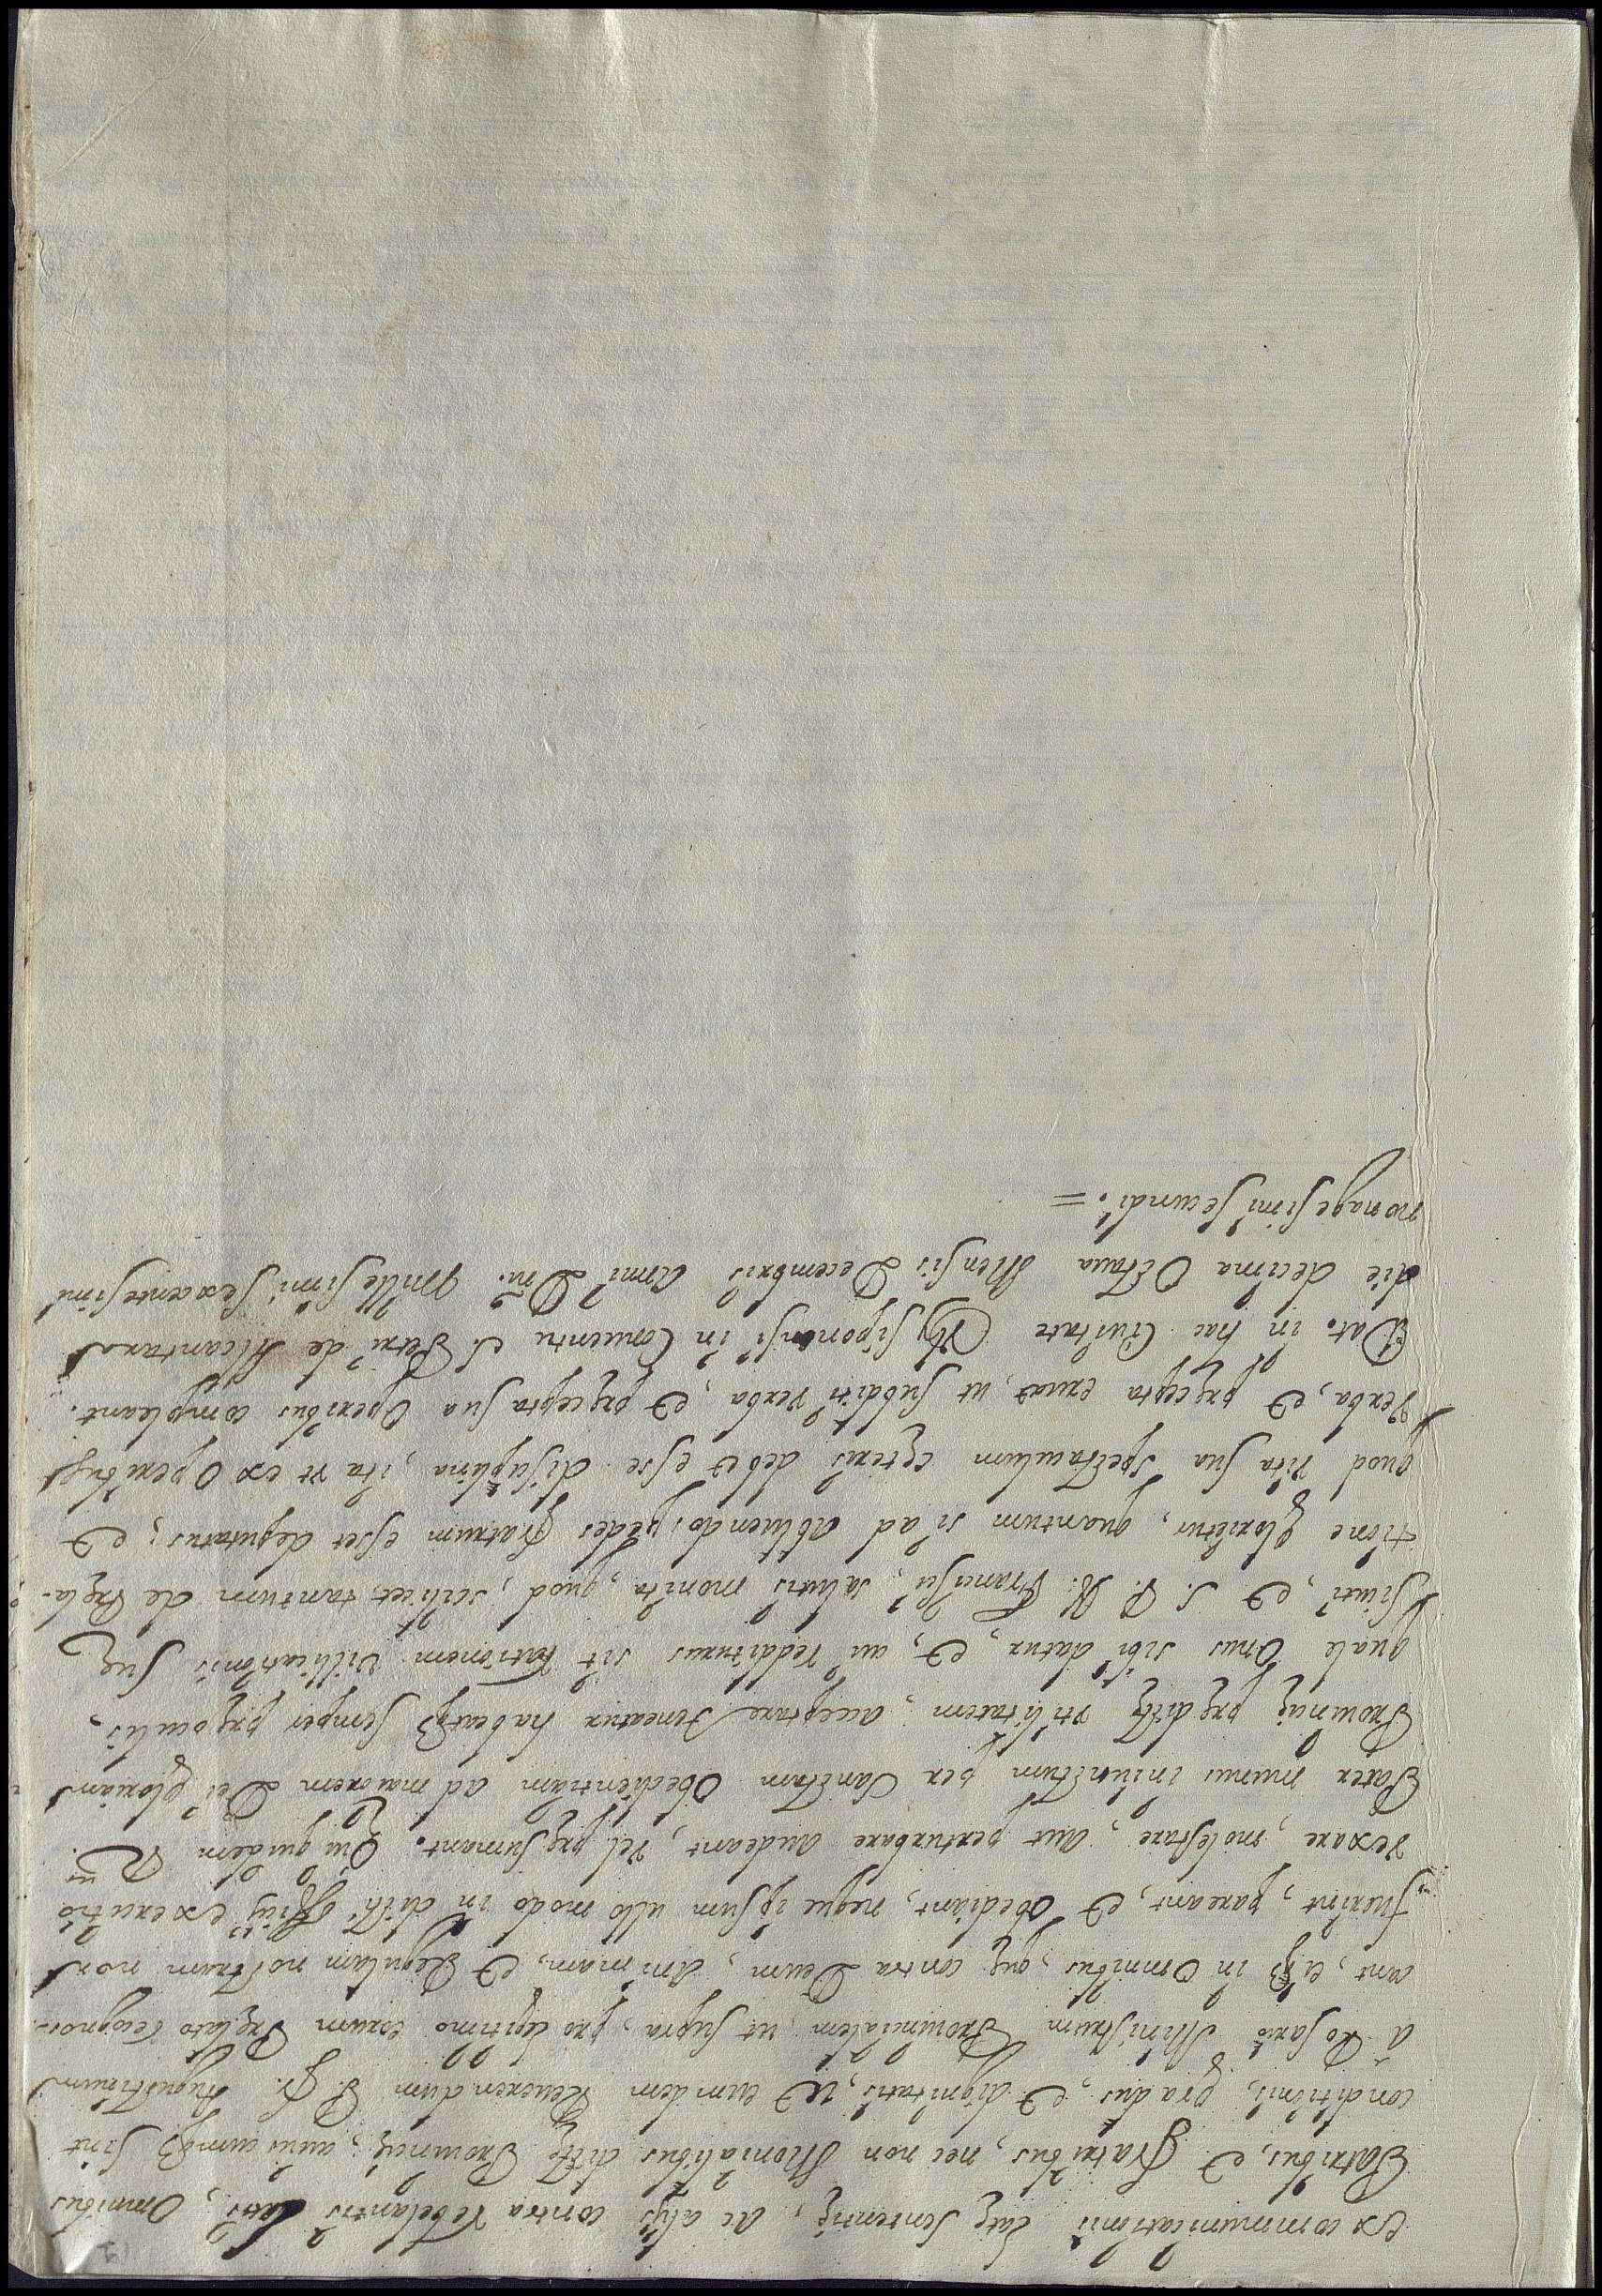 excommunicationis latę sententię, ac alijs contra rebelantes latis, Omnibus
Patribus, et Fratribus, nec non Monialibus dictę Prouincię, cuiuscumqȝ sint
conditionis, gradus, et dignitatis, ut eumdem Reuerendum P. Fr. Augustinum
à Rosario Ministrum Prouincialem, ut supra, pro legitimo eorum Pręlato recognos-
cant, eiqȝ in Omnibus, quę contra Deum, Animam, et Regulam nostram non
fuerint, pareant, et Obediant, neque ipsum ullo modo in dicti officij executio
vexare, molestare, aut perturbare audeant, vel pręsumant. Qui quidem R.
Pater munus iniunctum per Sanctam Obedientiam ad maiorem Dei gloriam
Prouincię prędictę vtilitatem, acceptare teneatur habeatqȝ semper prę oculis,
quale Onus sibi datur, et, cui redditurus sit rationem villicationis suę
siue, et S. P. N. Francisci, salutis monita, quod, scilicet tantum de Pręla-
tione glorietur, quantum si ad abluendos pedes fratrum esset deputatus; et
quod vita sua spectaculum cęteris debet esse disciplina, ita vt ex Operibus
verba, et pręcepta eruat, ut subditi verba, et pręcepta sua Operibus compleant.
Dat. in hac Ciuitate Vlyssiponensi in Conuentu S. Petri de Alcantara
die decima Octaua Mensis Decembris Anni Dñi. Millesimi sexcentesimi
nonagesimi secundi. =